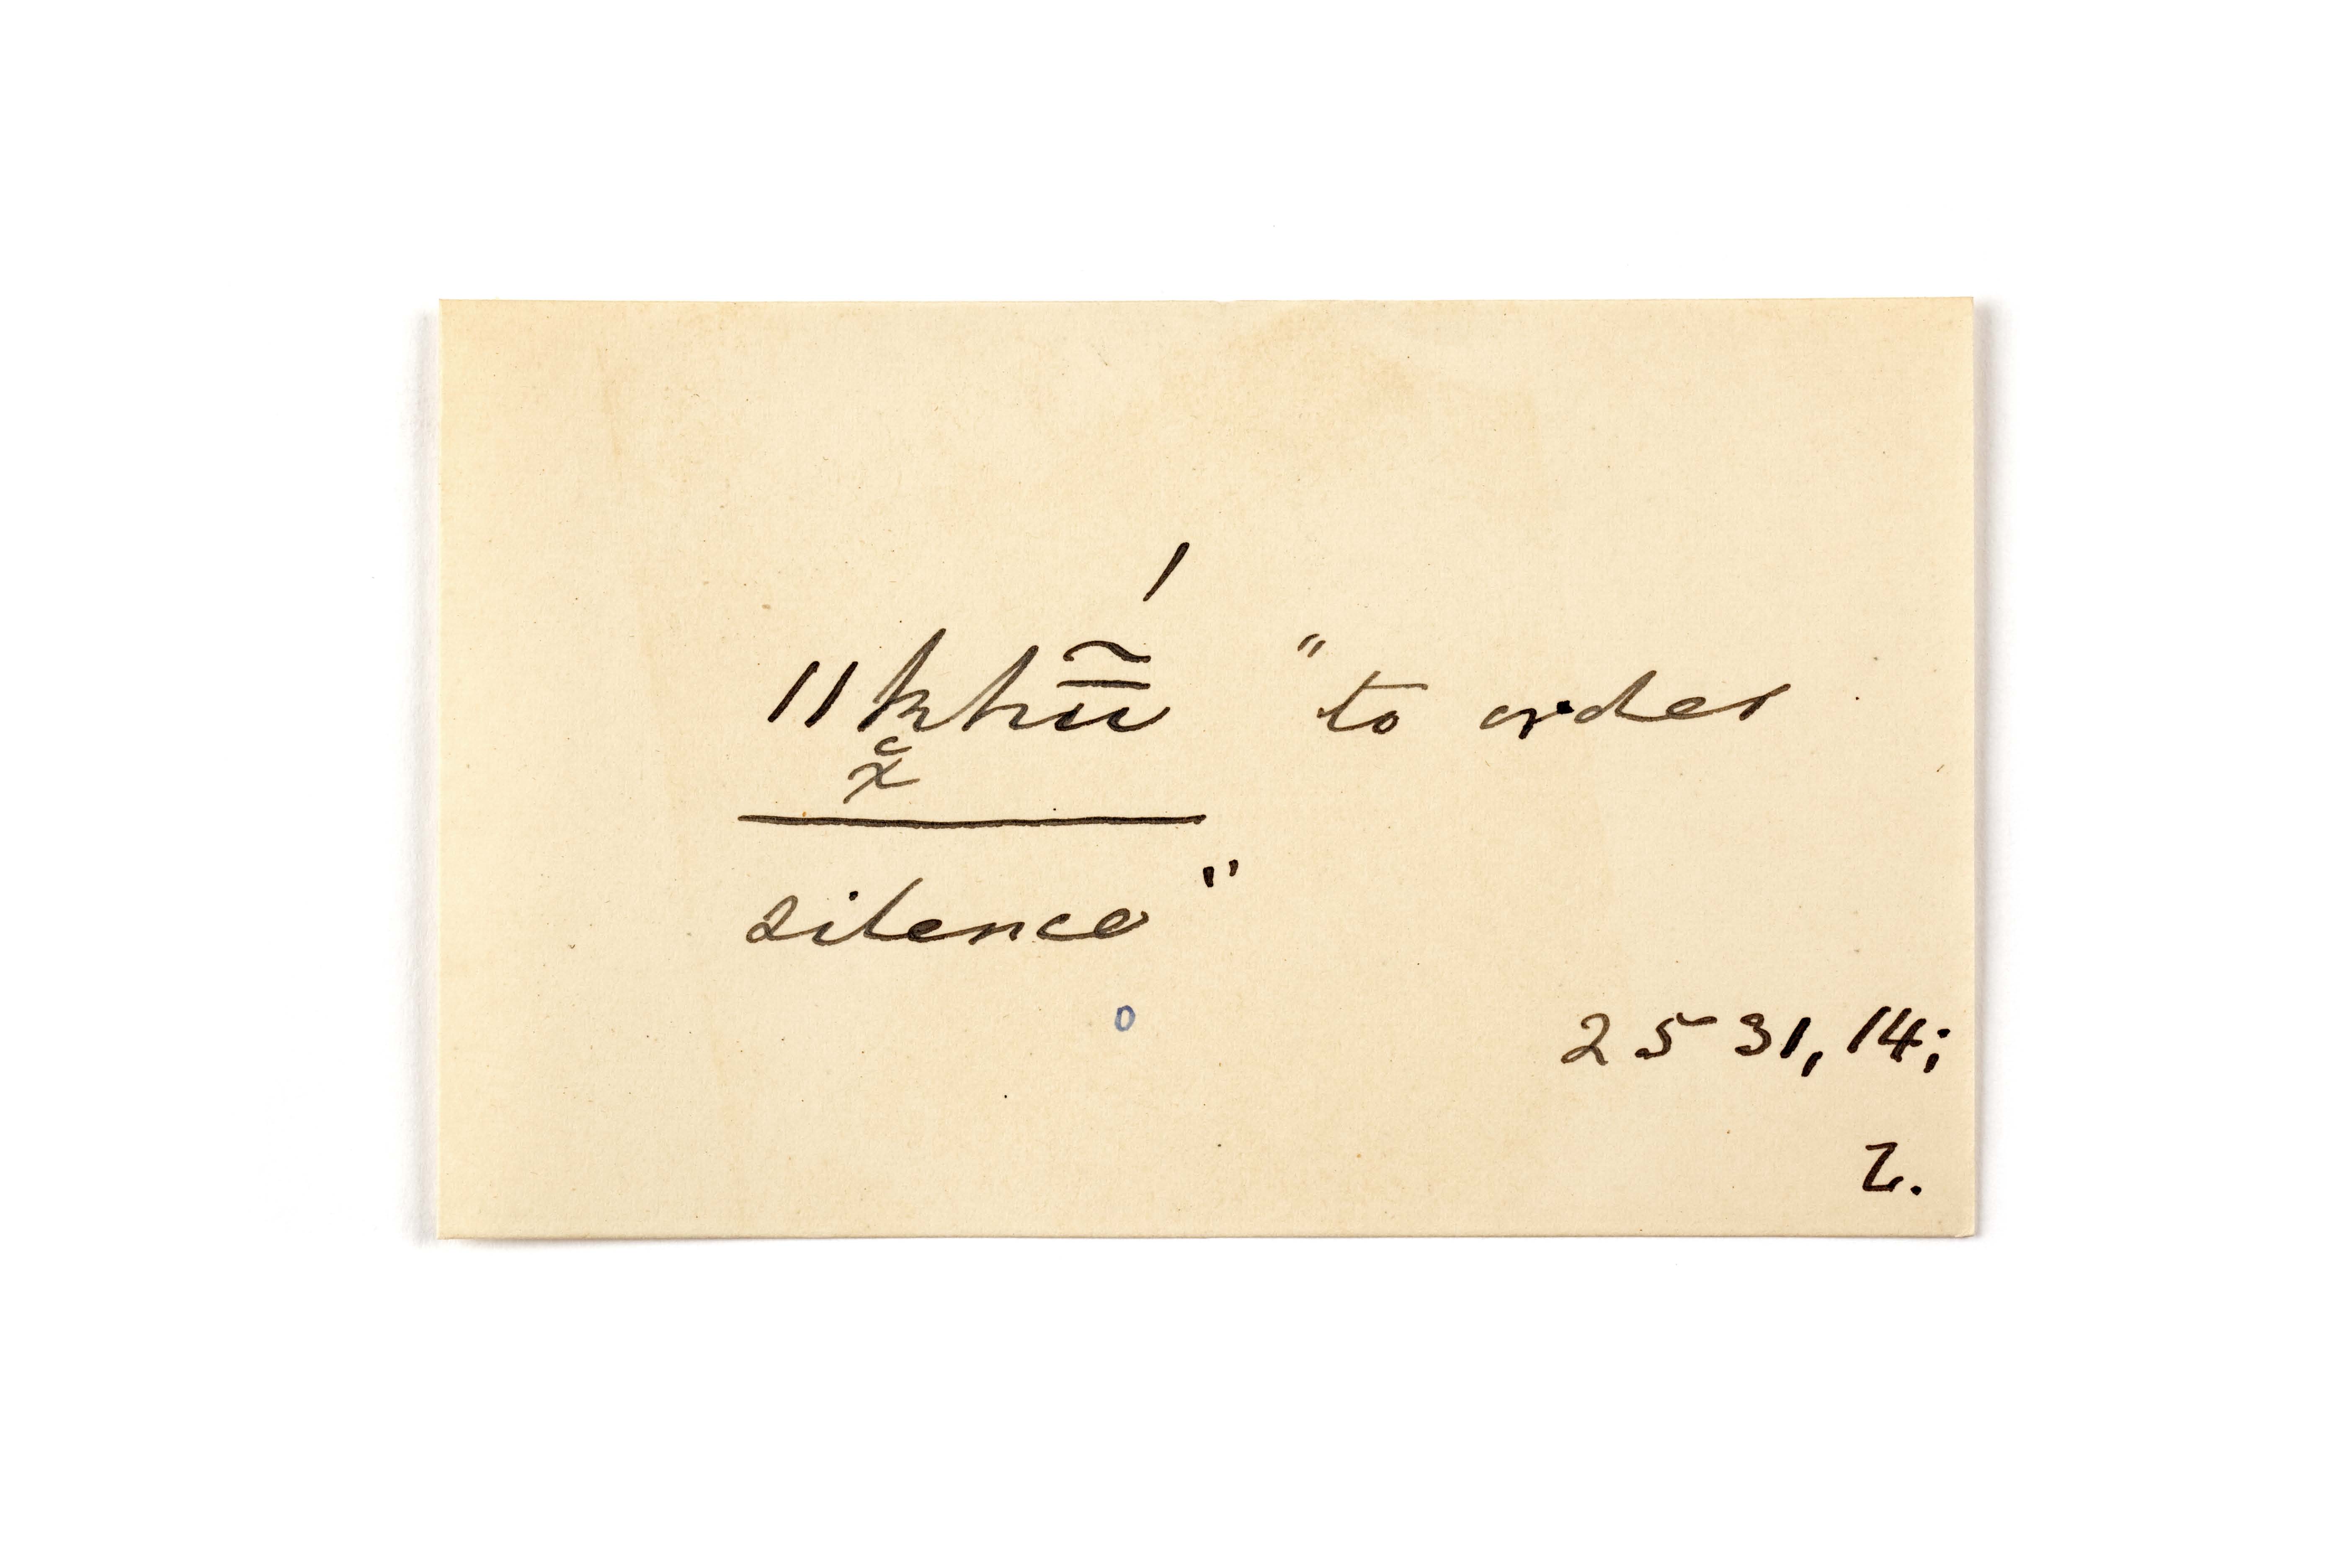 ǁkhū̃́ "to order
silence"
2531, 14;
L.